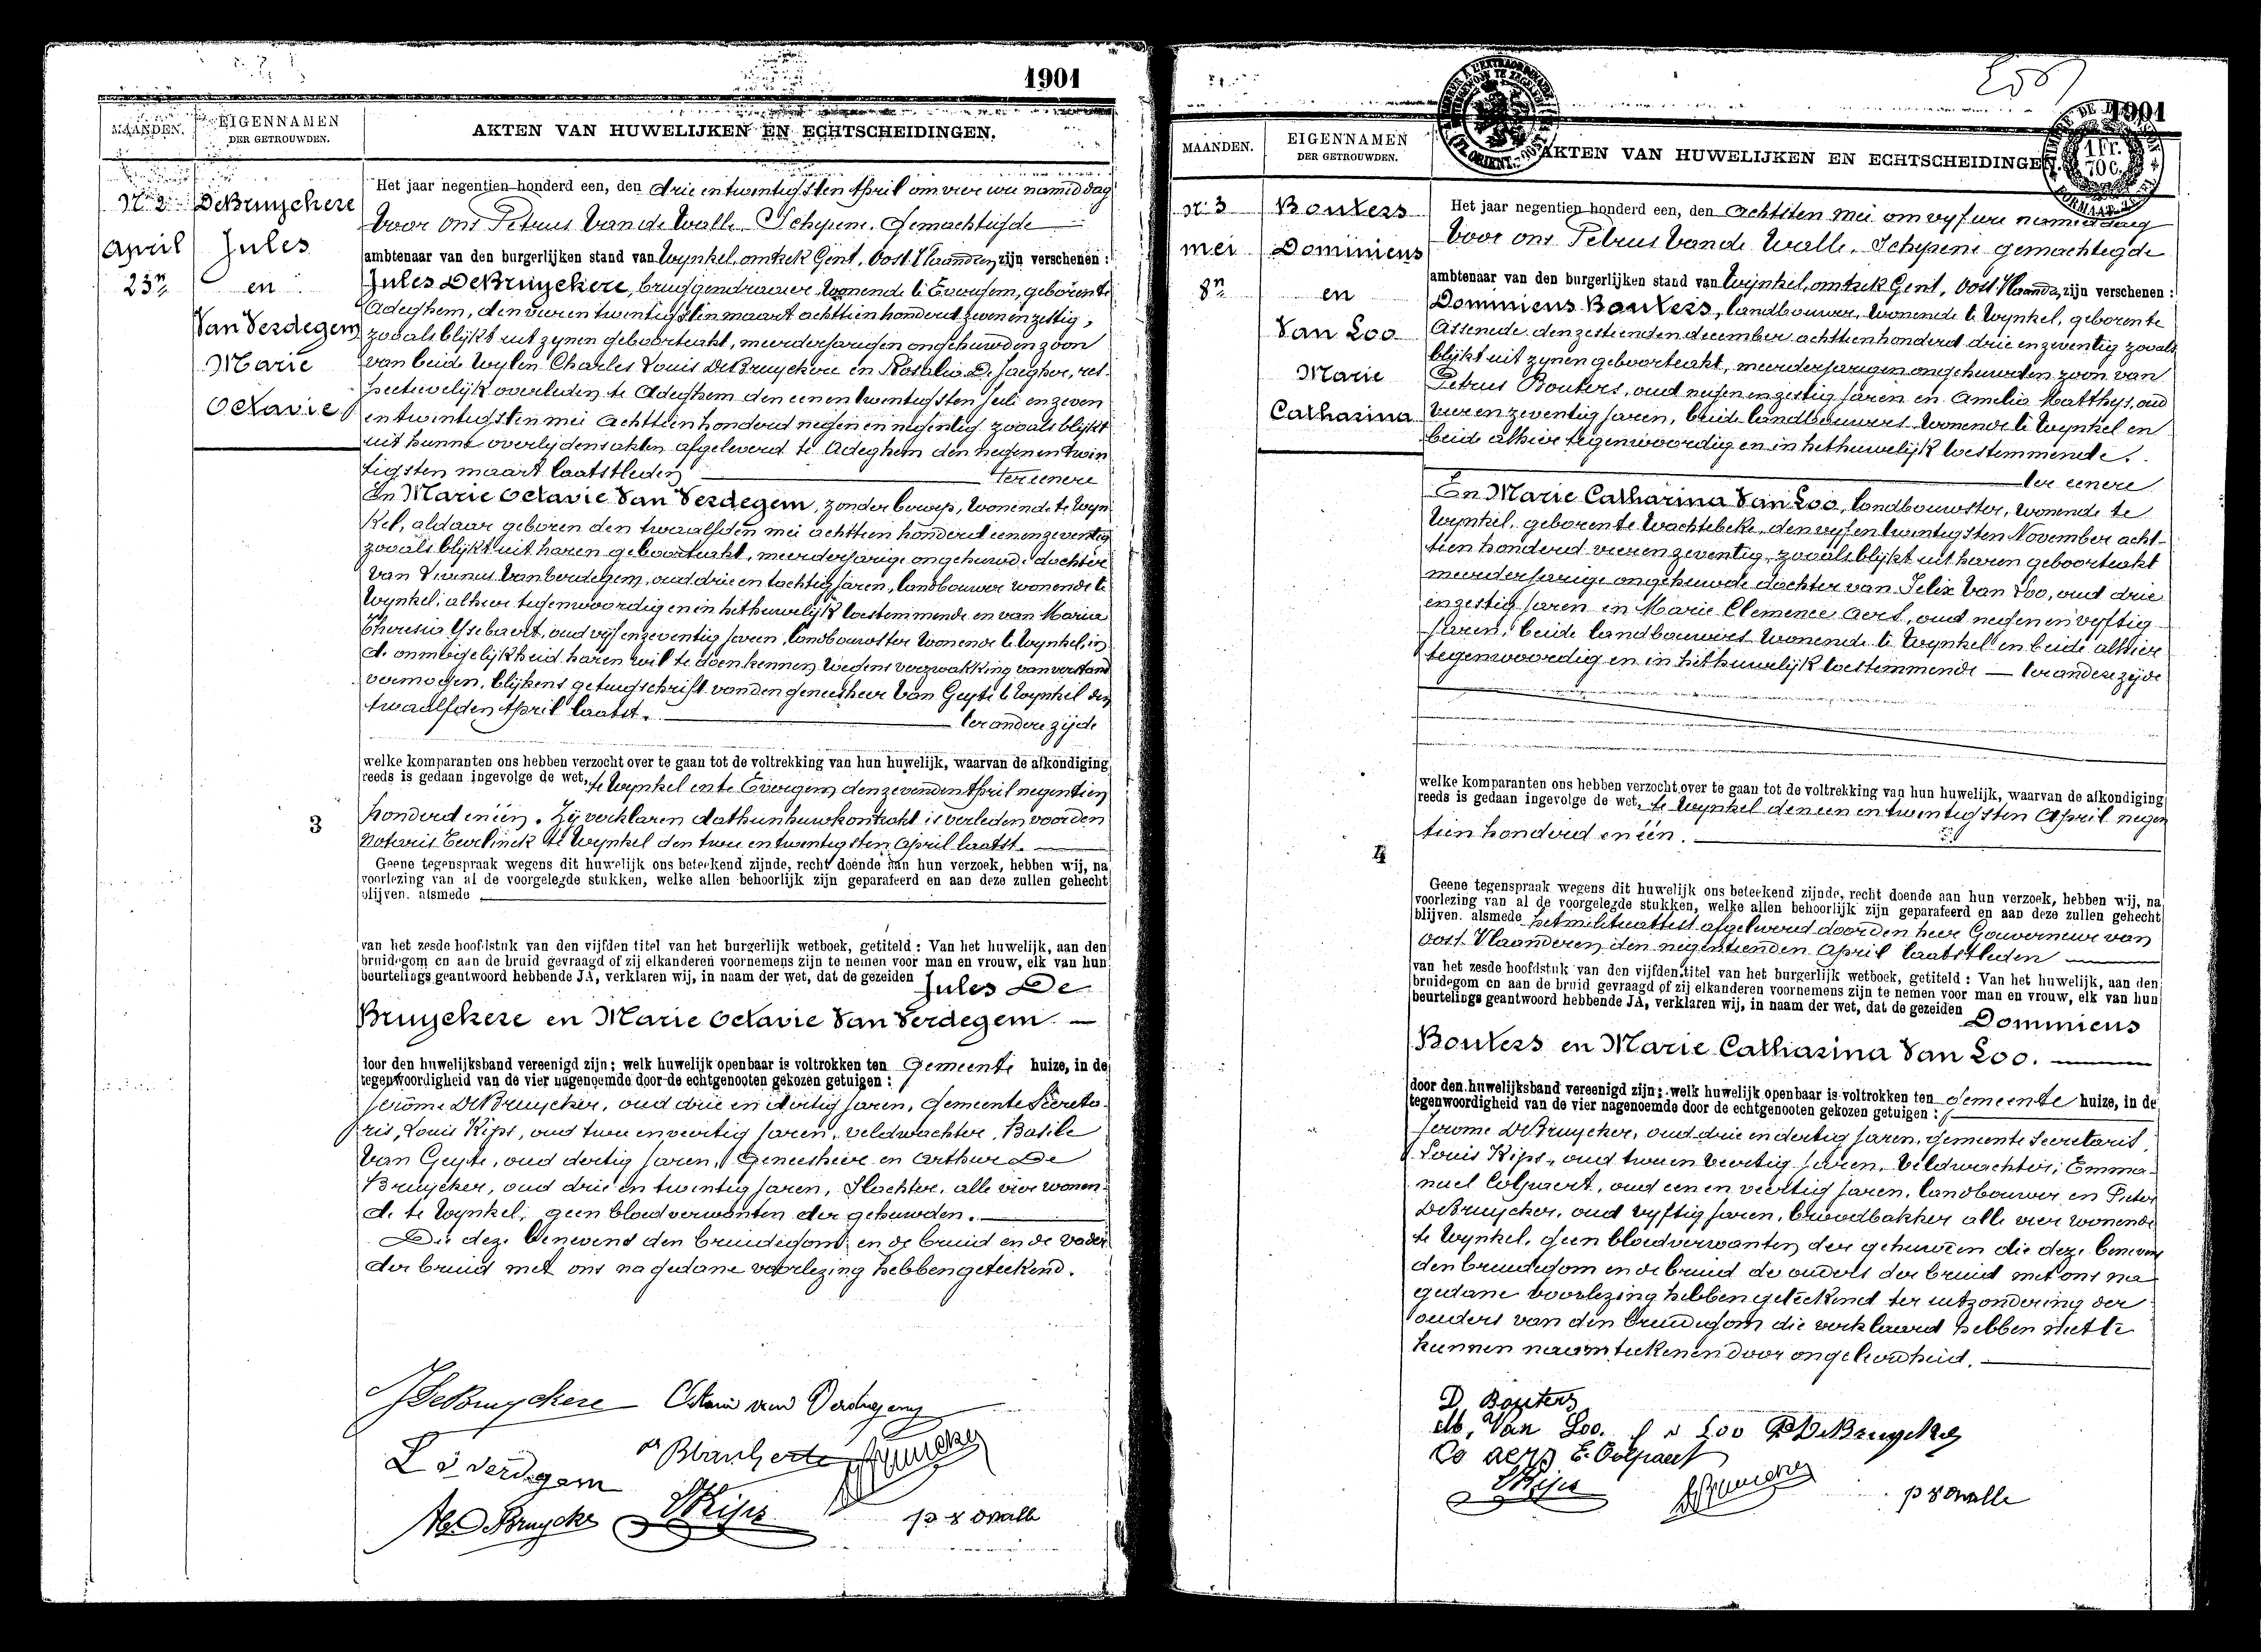 1901
MAANDEN.
EIGENNAMEN
DER GETROUWDEN.
AKTEN VAN HUWELIJKEN EN ECHTSCHEIDINGEN.
Nr 2
April
23n
DeBruyckere
Jules
en
Van Verdegem
Marie
Octavie
3
Het jaar negentien honderd een, den drie en twintigsten April om vier ure namiddag
Voor ons Petrus Van de Walle Schepene Gemachtigde
ambtenaar van den burgerlijken stand van Wynkel, omtrek Gent, Oost Vlaanderen, zijn verschenen :
Jules DeBruyckere, wonende te Evergem, geboren te
Adeghem, den vier en twintigsten maart achttien honderd zeven en zestig,
zooals blijkt uit zynen geboorteakt, meerderjarigen ongehuwden zoon
van beide wylen Charles Louis DeBruyckere en Rosalia De Jaegher, res-
pectievelijk overleden te Adeghem den een en twintigsten Juli en zeven
en twintigsten mei achttien honderd negen en negentig zooals blijkt
uit hunne overlijdensakten afgeleverd te Adeghem den negen en twin
tigsten maart laatstleden ter eenere
En Marie Octavie Van Verdegem, zonder beroep, wonende te Wyn
kel, aldaar geboren den twaalfden mei achttien honderd een en zeventig
zooals blijkt uit haren geboorteakt, meerderjarige ongehuwde dochter
van Livinus Van Verdegem, oud drie en tachtig jaren, landbouwer wonende te
Wynkel, alhier tegenwoordig en in het huwelijk toestemmende en van Maria
Theresia Ysebaert, oud vijf en zeventig jaren, landbouwster wonende te Wynkel, in
de onmogelijkheid haren wil te doen kennen wegens verzwakking van verstand
vermogen, blijkens getuigschrift van den geneesheer Van Geyte te Wynkel den
twaalfden April laatst. ter andere zijde
welke komparanten ons hebben verzocht over te gaan tot de voltrekking van hun huwelijk, waarvan de afkondiging
reeds is gedaan ingevolge de wet, te Wynkel en te Evergem den zevenden April negentien
honderd en één. Zij verklaren dat hun huwkontrakt is verleden voor den
Notaris Eerlinck te Wynkel den twee en twintigsten April laatst.
Geene tegenspraak wegens dit huwelijk ons beteekend zijnde, recht doende aan hun verzoek, hebben wij, na
voorlezing van al de voorgelegde stukken, welke allen behoorlijk zijn geparafeerd en aan deze zullen gehecht
blijven. alsmede
van het zesde hoofdstuk van den vijfden titel van het burgerlijk wetboek, getiteld : Van het huwelijk, aan den
bruidegom en aan de bruid gevraagd of zij elkanderen voornemens zijn te nemen voor man en vrouw, elk van hun
beurtelings geantwoord hebbende JA, verklaren wij, in naam der wet, dat de gezeiden Jules De
Bruyckere en Marie Octavie Van Verdegem
door den huwelijksband vereenigd zijn; welk huwelijk openbaar is voltrokken ten Gemeente huize, in de
tegenwoordigheid van de vier nagenoemde door de echtgenooten gekozen getuigen :
Jerôme DeBruycker, oud drie en dertig jaren, Gemeente Secreta-
ris, Louis Kips, oud twee en veertig jaren, veldwachter, Basile
Van Geyte, oud dertig jaren, Geneesheer en Arthur De
Bruycker, oud drie en twintig jaren, Slachter, alle vier wonen-
de te Wynkel, geen bloedverwanten der gehuwden.
Die deze benevens den bruidegom en de bruid en de vader
der bruid met ons na gedane voorlezing hebben geteekend.
JDeBruyckere
L v verdegem
DeBruycke
LKips
p v d walle
1901
1 Fr.
70 C.
MAANDEN.
EIGENNAMEN
DER GETROUWDEN.
AKTEN VAN HUWELIJKEN EN ECHTSCHEIDINGEN.
nr. 3
mei
8n
Bouters
Dominicus
en
Van Loo
Marie
Catharina
4
Het jaar negentien honderd een, den achtsten mei om vyf ure namiddag
Voor ons Petrus Van de Walle, Schepene gemachtigde
ambtenaar van den burgerlijken stand van Wynkel, omtrek Gent, Oost Vlaandn, zijn verschenen :
Dominicus Bouters, landbouwer, wonende te Wynkel, geboren te
Assenede den zestienden december achttien honderd drie en zeventig zooals
blijkt uit zynen geboorteakt, meerderjarigen ongehuwden zoon van
Petrus Bouters, oud negen en zestig jaren en Amelia Matthys, oud
vier en zeventig jaren, beide landbouwers wonende te Wynkel en
beide alhier tegenwoordig en in het huwelijk toestemmende.
ter eenere
En Marie Catharina Van Loo, landbouwster, wonende te
Wynkel, geboren te Wachtebeke, den vyf en twintigsten November acht-
tien honderd vier en zeventig, zooals blijkt uit haren geboorteakt
meerderjarige ongehuwde dochter van Felix Van Loo, oud drie
en zestig jaren en Marie Clemence Aers, oud negen en vyftig
jaren, beide landbouwers wonende te Wynkel en beide alhier
tegenwoordig en in het huwelijk toestemmende — ter andere zijde
welke komparanten ons hebben verzocht over te gaan tot de voltrekking van hun huwelijk, waarvan de afkondiging
reeds is gedaan ingevolge de wet, te Wynkel den een en twintigsten April negen
tien honderd en één.
Geene tegenspraak wegens dit huwelijk ons beteekend zijnde, recht doende aan hun verzoek, hebben wij, na
voorlezing van al de voorgelegde stukken, welke allen behoorlijk zijn geparafeerd en aan deze zullen gehecht
blijven. alsmede het militieattest afgeleverd door den heer Gouverneur van
Oost Vlaanderen den negentienden April laatstleden
van het zesde hoofdstuk van den vijfden titel van het burgerlijk wetboek, getiteld : Van het huwelijk, aan den
bruidegom en aan de bruid gevraagd of zij elkanderen voornemens zijn te nemen voor man en vrouw, elk van hun
beurtelings geantwoord hebbende JA, verklaren wij, in naam der wet, dat de gezeiden Dominicus
Bouters en Marie Catharina Van Loo.
door den huwelijksband vereenigd zijn; welk huwelijk openbaar is voltrokken ten Gemeente huize, in de
tegenwoordigheid van de vier nagenoemde door de echtgenooten gekozen getuigen :
Jerome DeBruycker, oud drie en dertig jaren, gemeente Secretaris,
Louis Kips, oud twee en veertig jaren, Veldwachter, Emma-
nuel Colpaert, oud een en veertig jaren, landbouwer en Pieter
DeBruycker, oud vyftig jaren, broodbakker alle vier wonende
te Wynkel, geen bloedverwanten der gehuwden die deze benevens
den bruidegom en de bruid de ouders der bruid met ons na
gedane voorlezing hebben geteekend ter uitzondering der
ouders van den bruidegom die verklaard hebben niet te
kunnen naamteekenen door ongeleerdheid.
D. Bouters
M. Van Loo. f v Loo P DeBruycker
Co aers E. Colpaert
LKips
p v d walle